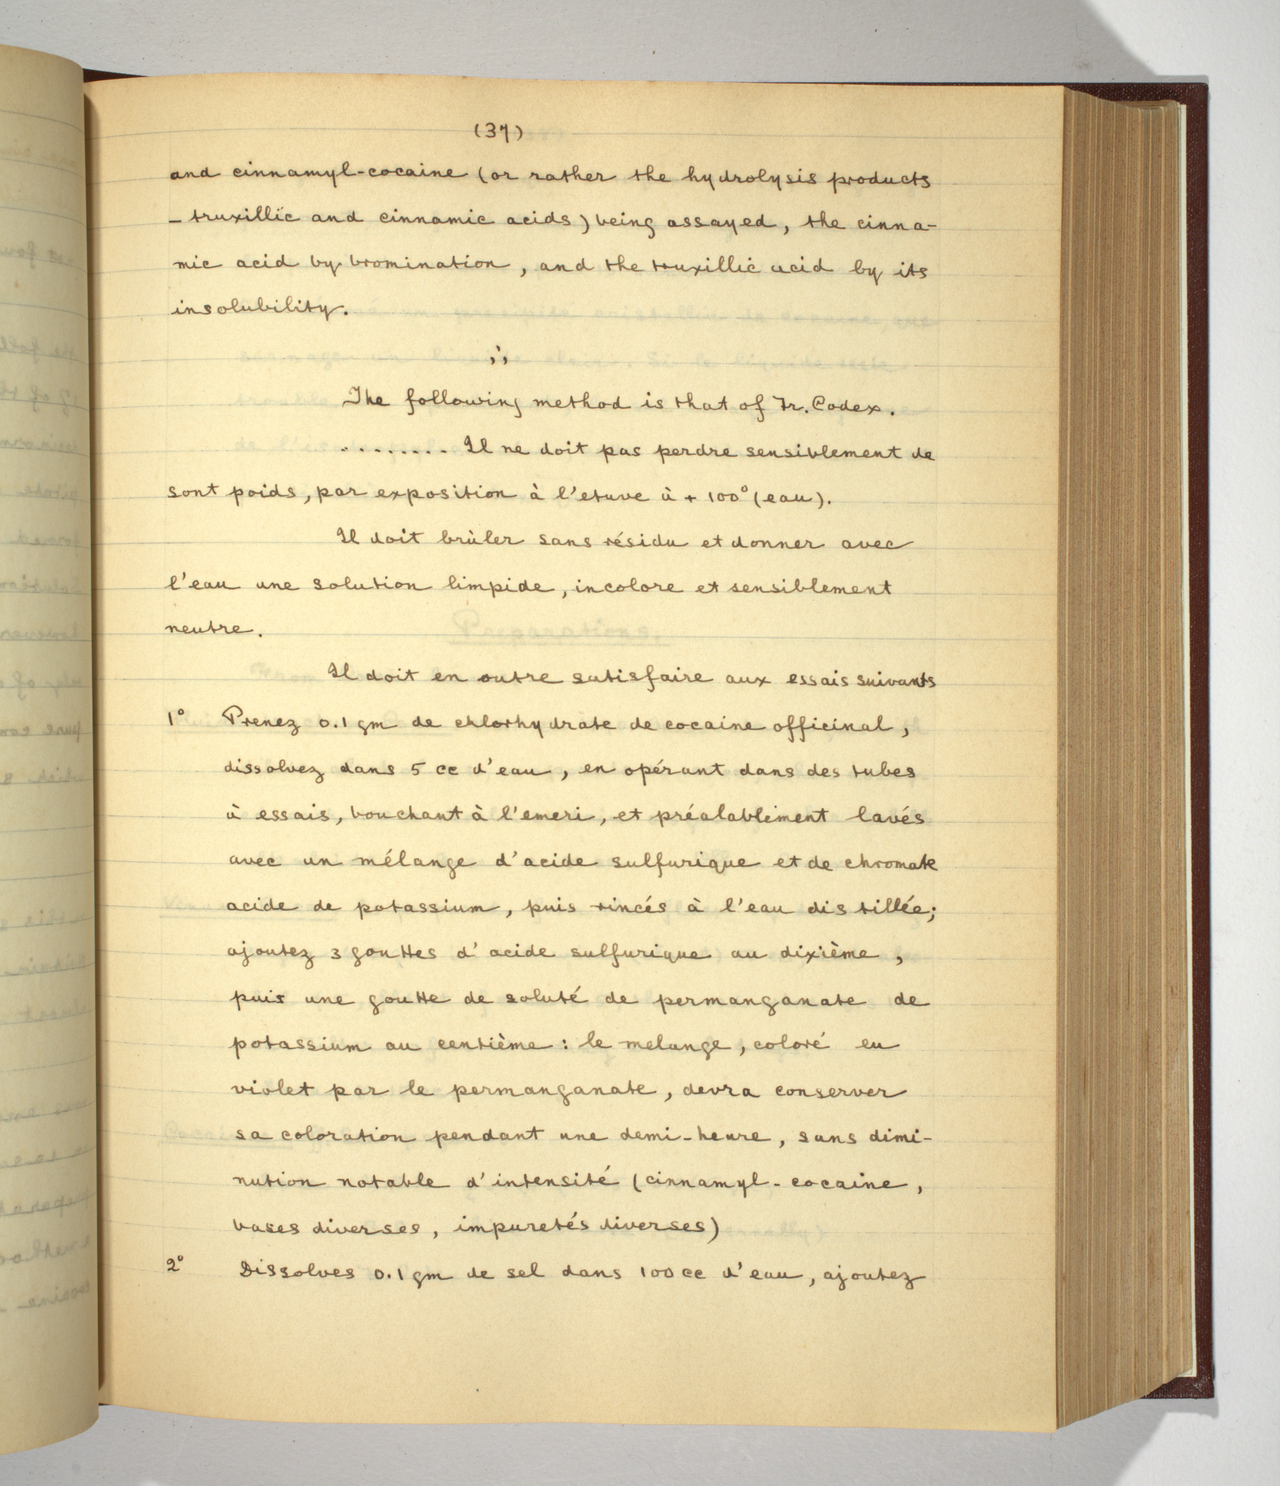 (37)
and cinnamyl-cocaine (or rather the hydrolysis products
– truxillic and cinnamic acids) being assayed, the cinna-
mic acid by bromination, and the truxillic acid by its
insolubility.
The following method is that of Fr. Codex.
........ Il ne doit pas perdre sensiblement de
sont poids, par exposition à l'etuve à + 100° (eau).
Il doit brûler sans résidu et donner avec
l'eau une solution limpide, incolore et sensiblement
neutre.
Il doit en outre satisfaire aux essais suivants
1° Prenez 0.1 gm de chlorhydrate de cocaine officinal,
dissolvez dans 5 cc d'eau, en opérant dans des tubes
à essais, bouchant à l'emeri, et préalablement lavés
avec un mélange d'acide sulfurique et de chromate
acide de potassium, puis rincés à l'eau distillée;
ajoutez 3 gouttes d'acide sulfurique au dixième,
puis une goutte de soluté de permanganate de
potassium au centième : le melange, coloré en
violet par le permanganate, devra conserver
sa coloration pendant une demi-heure, sans dimi-
nution notable d'intensité (cinnamyl-cocaine,
bases diverses, impuretés diverses)
2° Dissolves 0.1 gm de sel dans 100 cc d'eau, ajoutez